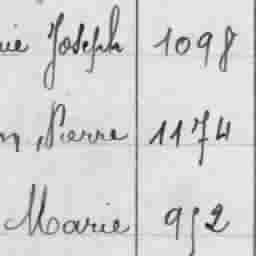 Joseph 1098
Pierre 1174
Marie 952